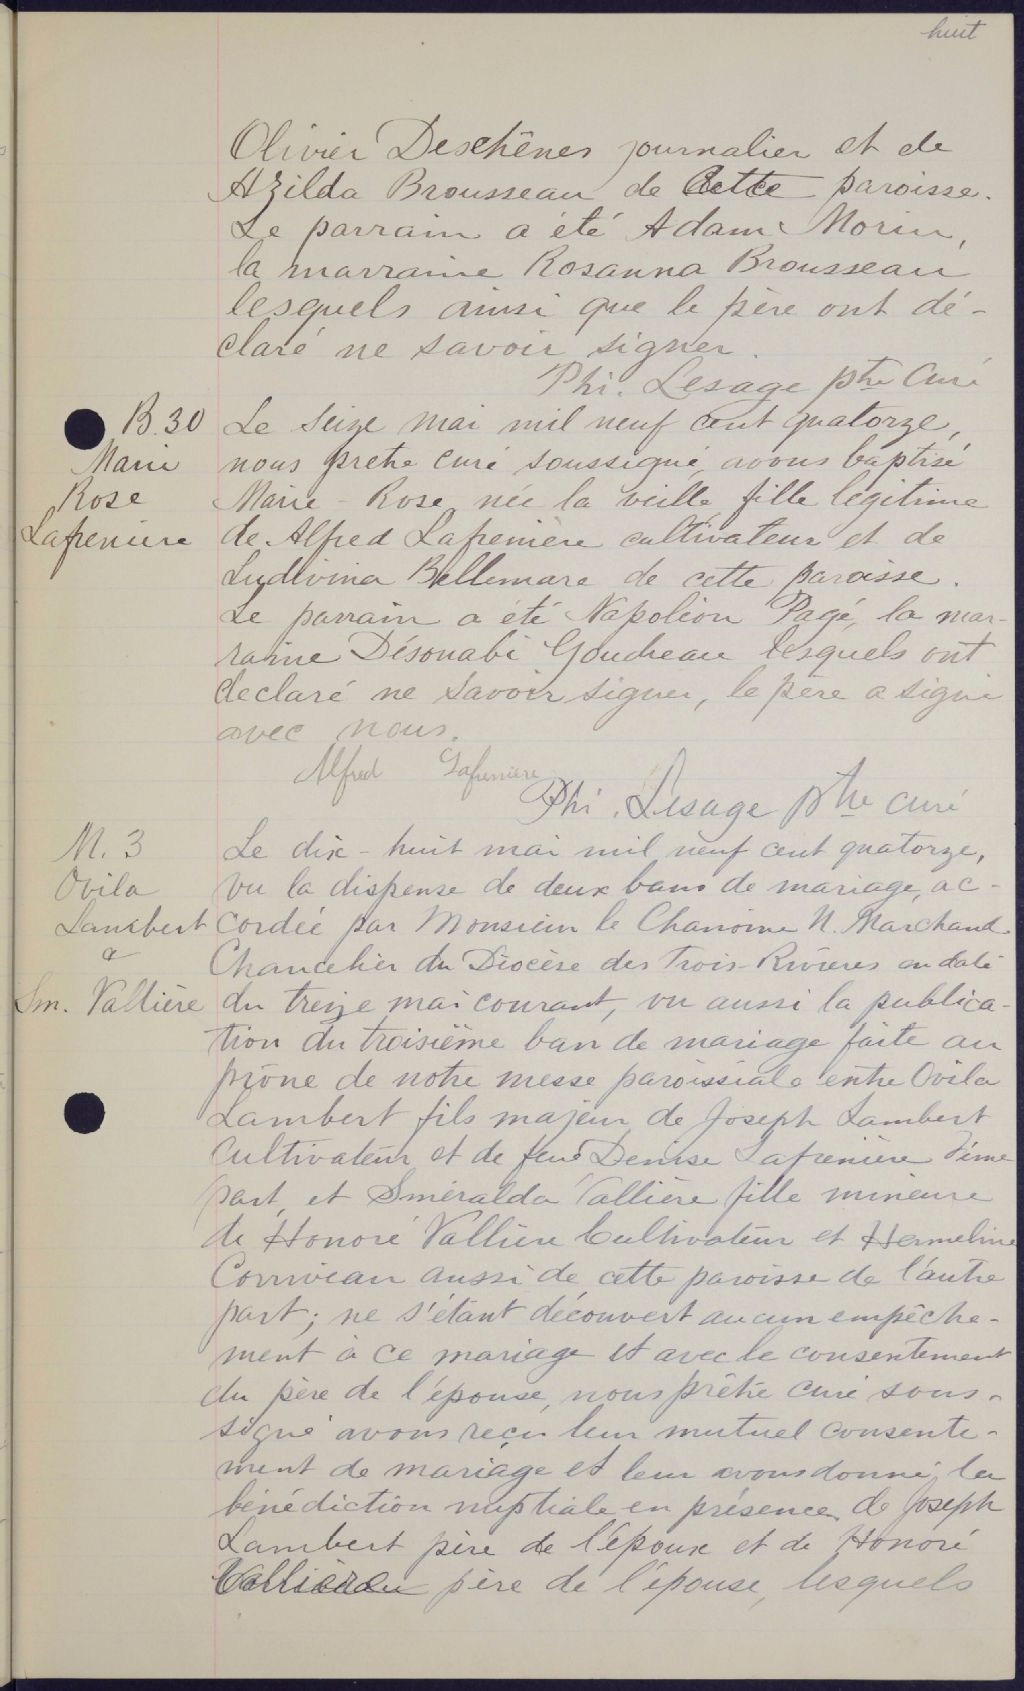 huit
Olivier Deschênes journalier et de
Azilda Brousseau de cette paroisse.
Le parrain a été Adam Morin,
la marraine Rosanna Brousseau
lesquels ainsi que le père ont dé-
claré ne savoir signer.
Phi. Lesage ptre Curé
B. 30
Marie
Rose
Lafrenière
Le seize mai mil neuf cent quatorze,
nous prêtre curé soussigné, avons baptisé
Marie-Rose, née la veille, fille légitime
de Alfred Lafrenière cultivateur et de
Ludivina Bellemare de cette paroisse.
Le parrain a été Napoléon Pagé, la mar-
raine Désonabi Goudreau lesquels ont
declaré ne savoir signer, le père a signé
avec nous.
Alfred Lafrenière
Phi. Lesage ptre curé
M. 3
Ovila
Lambert
&
Sm. Vallière
Le dix-huit mai mil neuf cent quatorze,
vu la dispense de deux bans de mariage, ac-
cordée par Monsieur le Chanoine N. Marchand
Chancelier du Diocèse des Trois-Rivières en date
du treize mai courant, vu aussi la publica-
tion du troisième ban de mariage faite au
prône de notre messe paroissiale entre Ovila
Lambert fils majeur de Joseph Lambert
Cultivateur et de feue Denise Lafrenière d'une
part, et Sméralda Vallière fille mineure
de Honoré Vallière Cultivateur et Hermeline
Corriveau aussi de cette paroisse de l'autre
part; ne s'étant découvert aucun empêche-
ment à ce mariage et avec le consentement
du père de l'épouse, nous prêtre curé sous-
signé avons reçu leur mutuel consente-
ment de mariage et leur avons donné la
bénédiction nuptiale en présence de Joseph
Lambert père de l'époux et de Honoré
Vallière père de l'épouse, lesquels